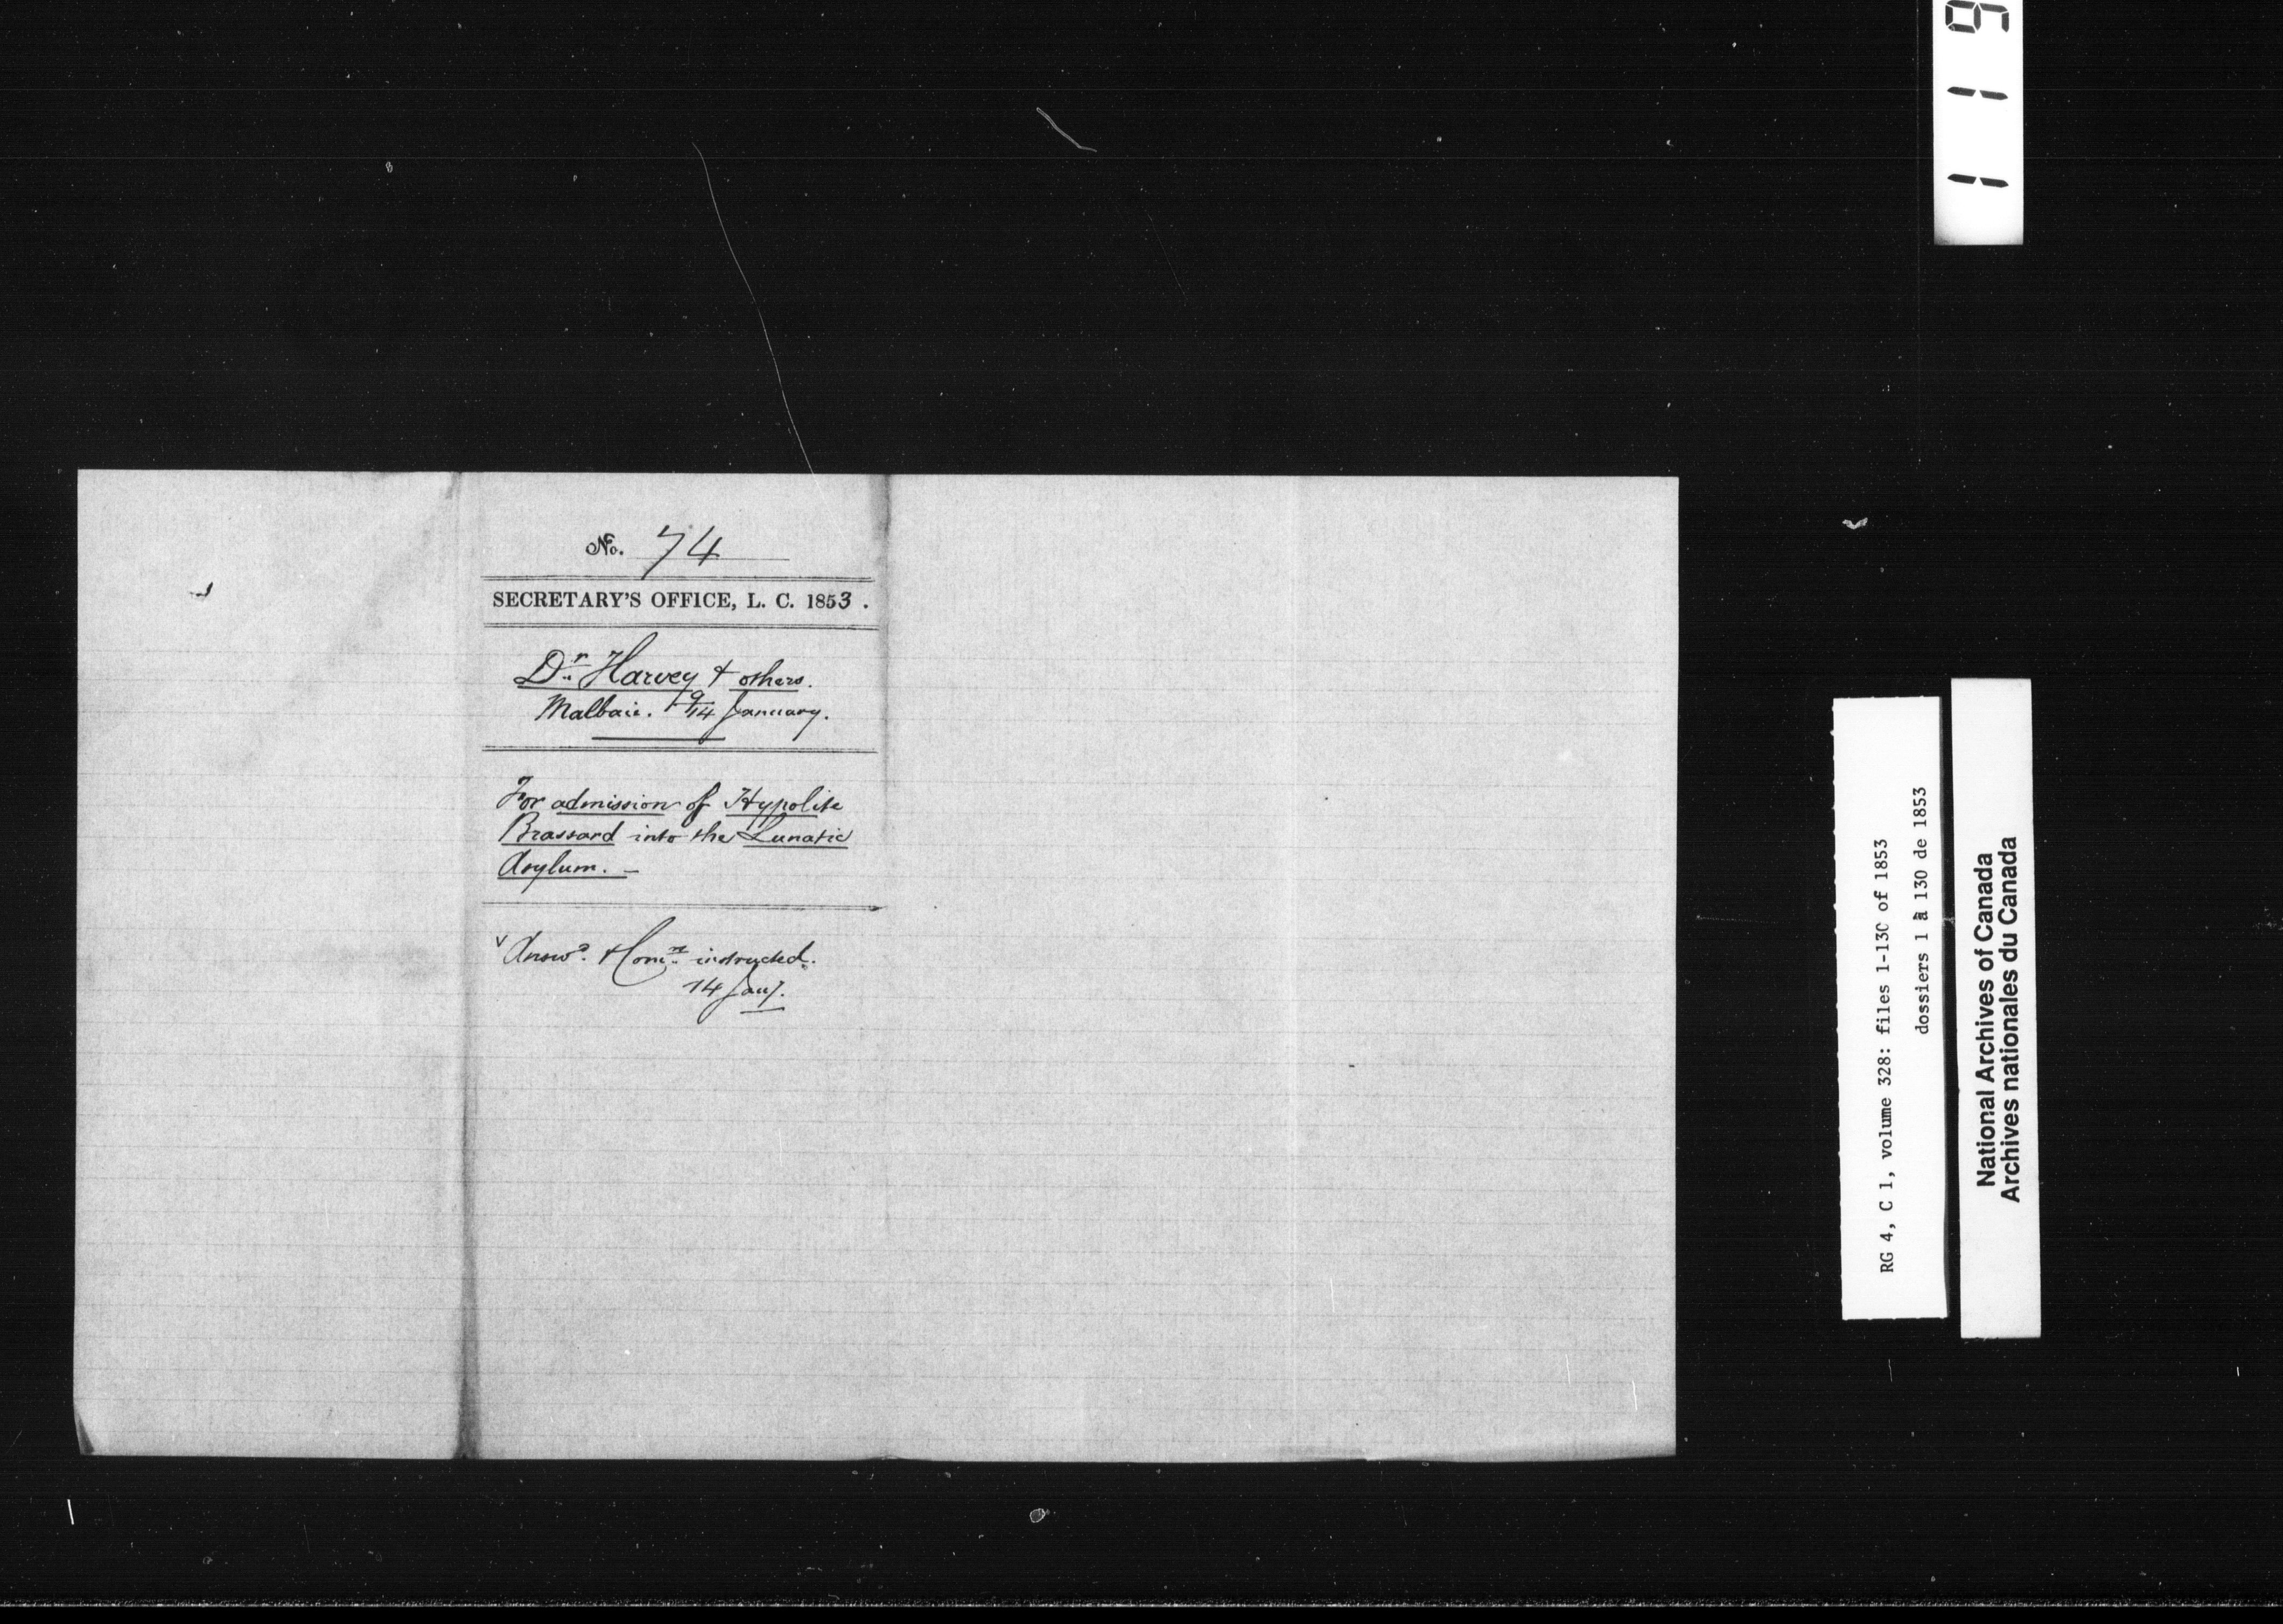 No. 74
SECRETARY'S OFFICE, L. C. 1853.
Dr. Harvey & others.
Malbaie. 9/14 January.
For admission of Hypolite
Brassard into the Lunatic
Asylum. –
Answd. & Comrs. instructed.
14 Jany.
RG 4, C 1, volume 328: files 1-130 of 1853
dossiers 1 à 130 de 1853
National Archives of Canada
Archives nationales du Canada